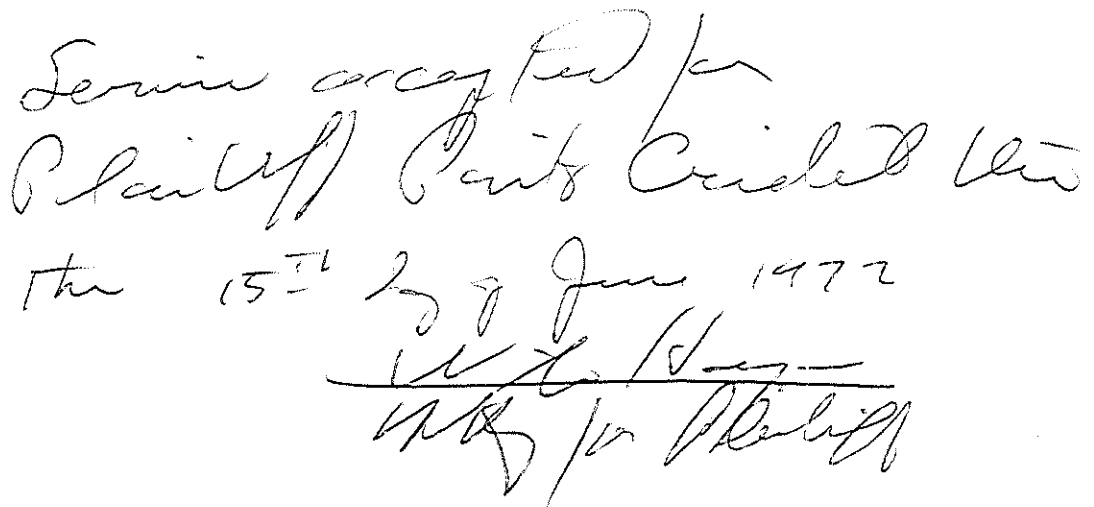 Service accepted for
Plaintiff Credit this
the 15th day of June 1972
Atty for Plaintiff